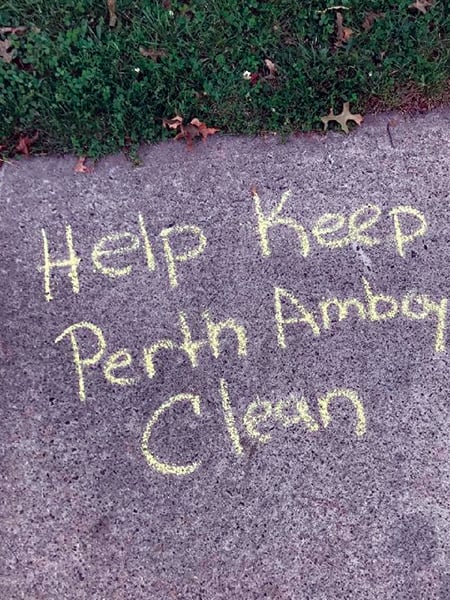 Help Keep
Perth Amboy
Clean